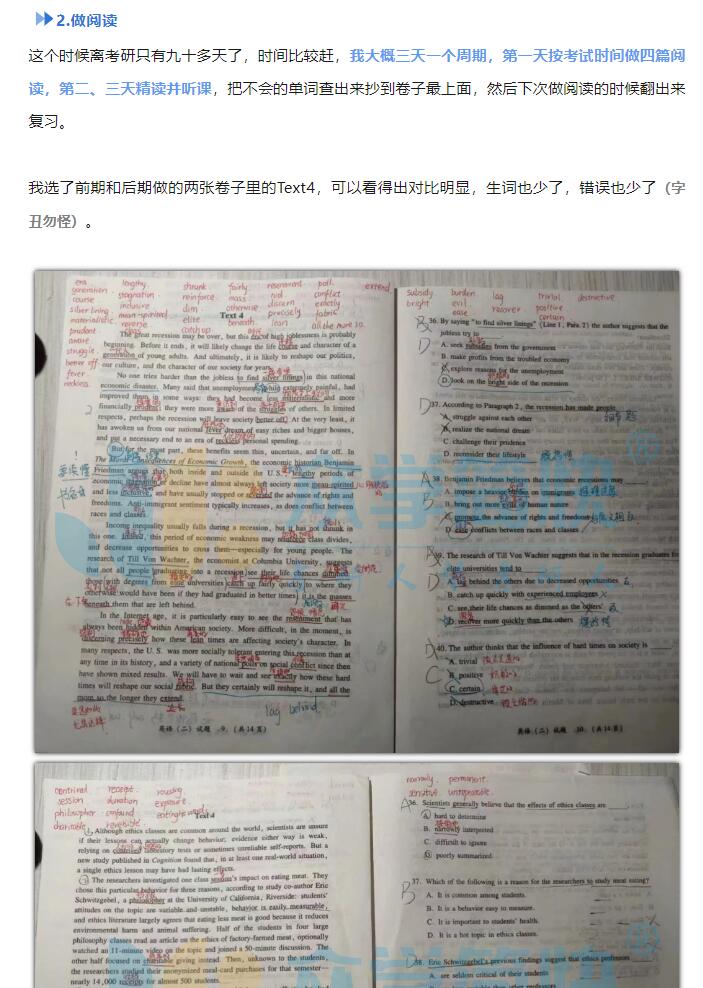 2.做阅读
这个时候离考研只有九十多天了，时间比较赶，我大概三天一个周期，第一天按考试时间做四篇阅
读，第二、三天精读并听课，把不会的单词查出来抄到卷子最上面，然后下次做阅读的时候翻出来
复习。
我选了前期和后期做的两张卷子里的Text4，可以看得出对比明显，生词也少了，错误也少了（字
丑勿怪）。
era lengthy shrunk fairly resentment poll extend
generation stagnation reinforce mass conflict
course inclusive dim otherwise discern exactly
silver lining mean-spirited elite precisely fabric
materialistic reverse beneath lean all the more so
prudent catch up
aware
struggle
better off
fever
reckless
Text 4
The great recession may be over, but this era of high joblessness is probably
beginning. Before it ends, it will likely change the life course and character of a
generation of young adults. And ultimately, it is likely to reshape our politics,
our culture, and the character of our society for years.
No one tries harder than the jobless to find silver linings in this national
economic disaster. Many said that unemployment, while extremely painful, had
improved them in some ways: they had become less materialistic and more
financially prudent; they were more aware of the struggles of others. In limited
respects, perhaps the recession will leave society better off. At the very least, it
has awoken us from our national fever dream of easy riches and bigger houses,
and put a necessary end to an era of reckless personal spending.
But for the most part, these benefits seem thin, uncertain, and far off. In
The Moral Consequences of Economic Growth, the economic historian Benjamin
Friedman argues that both inside and outside the U.S., lengthy periods of
economic stagnation or decline have almost always left society more mean-spirited
and less inclusive, and have usually stopped or reversed the advance of rights and
freedoms. Anti-immigrant sentiment typically increases, as does conflict between
races and classes.
Income inequality usually falls during a recession, but it has not shrunk in
this one. Indeed, this period of economic weakness may reinforce class divides,
and decrease opportunities to cross them—especially for young people. The
research of Till Von Wachter, the economist at Columbia University, suggests
that not all people graduating into a recession see their life chances dimmed:
those with degrees from elite universities catch up fairly quickly to where they
otherwise would have been if they had graduated in better times; it is the masses
beneath them that are left behind.
In the Internet age, it is particularly easy to see the resentment that has
always been hidden within American society. More difficult, in the moment, is
discerning precisely how these lean times are affecting society's character. In
many respects, the U.S. was more socially tolerant entering this recession than at
any time in its history, and a variety of national polls on social conflict since then
have shown mixed results. We will have to wait and see exactly how these hard
times will reshape our social fabric. But they certainly will reshape it, and all the
more so the longer they extend.
lag behind
英语（二）试题 .9. （共14页）
subsidy burden lag trivial destructive
bright evil recover positive
ease certain
36. By saying "to find silver linings" (Line 1, Para. 2) the author suggests that the
jobless try to
A. seek subsidies from the government
B. make profits from the troubled economy
C. explore reasons for the unemployment
D. look on the bright side of the recession
37. According to Paragraph 2, the recession has made people
A. struggle against each other
B. realize the national dream
C. challenge their prudence
D. reconsider their lifestyle
38. Benjamin Friedman believes that economic recessions may
A. impose a heavier burden on immigrants
B. bring out more evils of human nature
C. promote the advance of rights and freedoms
D. ease conflicts between races and classes
39. The research of Till Von Wachter suggests that in the recession graduates fr
elite universities tend to
A. lag behind the others due to decreased opportunities
B. catch up quickly with experienced employees
C. see their life chances as dimmed as the others'
D. recover more quickly than the others
40. The author thinks that the influence of hard times on society is
A. trivial
B. positive
C. certain
D. destructive
英语（二）试题 .10. （共14页）
contrived receipt rousing
session duration exposure
philosopher confound
charitable
Text 4
Although ethics classes are common around the world, scientists are unsure
if their lessons can actually change behavior; evidence either way is weak,
relying on contrived laboratory tests or sometimes unreliable self-reports. But a
new study published in Cognition found that, in at least one real-world situation,
a single ethics lesson may have had lasting effects.
The researchers investigated one class session's impact on eating meat. They
chose this particular behavior for three reasons, according to study co-author Eric
Schwitzgebel, a philosopher at the University of California, Riverside: students'
attitudes on the topic are variable and unstable, behavior is easily measurable,
and ethics literature largely agrees that eating less meat is good because it reduces
environmental harm and animal suffering. Half of the students in four large
philosophy classes read an article on the ethics of factory-farmed meat, optionally
watched an 11-minute video on the topic and joined a 50-minute discussion. The
other half focused on charitable giving instead. Then, unknown to the students,
the researchers studied their anonymized meal-card purchases for that semester—
nearly 14,000 receipts for almost 500 students.
narrowly permanent
36. Scientists generally believe that the effects of ethics classes are
A. hard to determine
B. narrowly interpreted
C. difficult to ignore
D. poorly summarized
37. Which of the following is a reason for the researchers to study meat eating?
A. It is common among students.
B. It is a behavior easy to measure.
C. It is important to students' health.
D. It is a hot topic in ethics classes.
38. Eric Schwitzgebel's previous findings suggest that ethics professors
A. are seldom critical of their students